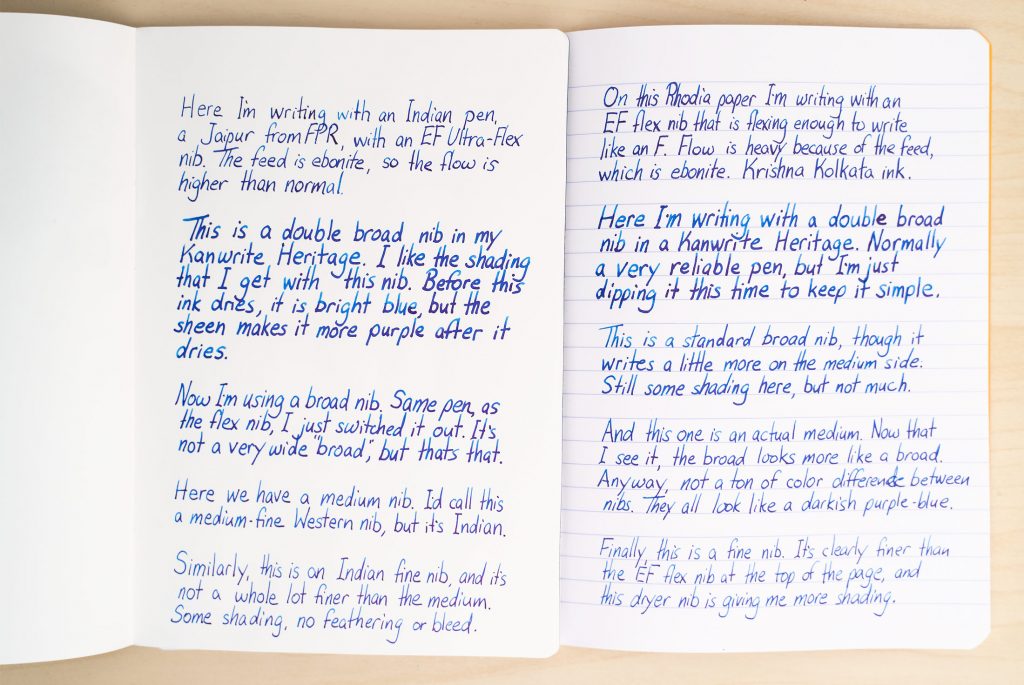 Here I'm writing with an Indian pen,
a Jaipur from FPR, with an EF Ultra-Flex
nib. The feed is ebonite, so the flow is
higher than normal.
This is a double broad nib in my
Kanwrite Heritage. I like the shading
that I get with this nib. Before this
ink dries, it is bright blue, but the
sheen makes it more purple after it
dries.
Now I'm using a broad nib. Same pen, as
the flex nib, I just switched it out. It's
not a very wide "broad", but thats that.
Here we have a medium nib. I'd call this
a medium-fine Western nib, but it's Indian.
Similarly, this is an Indian fine nib, and it's
not a whole lot finer than the medium.
Some shading, no feathering or bleed.
On this Rhodia paper I'm writing with an
EF flex nib that is flexing enough to write
like an F. Flow is heavy because of the feed,
which is ebonite. Krishna Kolkata ink.
Here I'm writing with a double broad
nib in a Kanwrite Heritage. Normally
a very reliable pen, but I'm just
dipping it this time to keep it simple.
This is a standard broad nib, though it
writes a little more on the medium side.
Still some shading here, but not much.
And this one is an actual medium. Now that
I see it, the broad looks more like a broad.
Anyway, not a ton of color difference between
nibs. They all look like a darkish purple-blue.
Finally, this is a fine nib. It's clearly finer than
the EF flex nib at the top of the page, and
this dryer nib is giving me more shading.